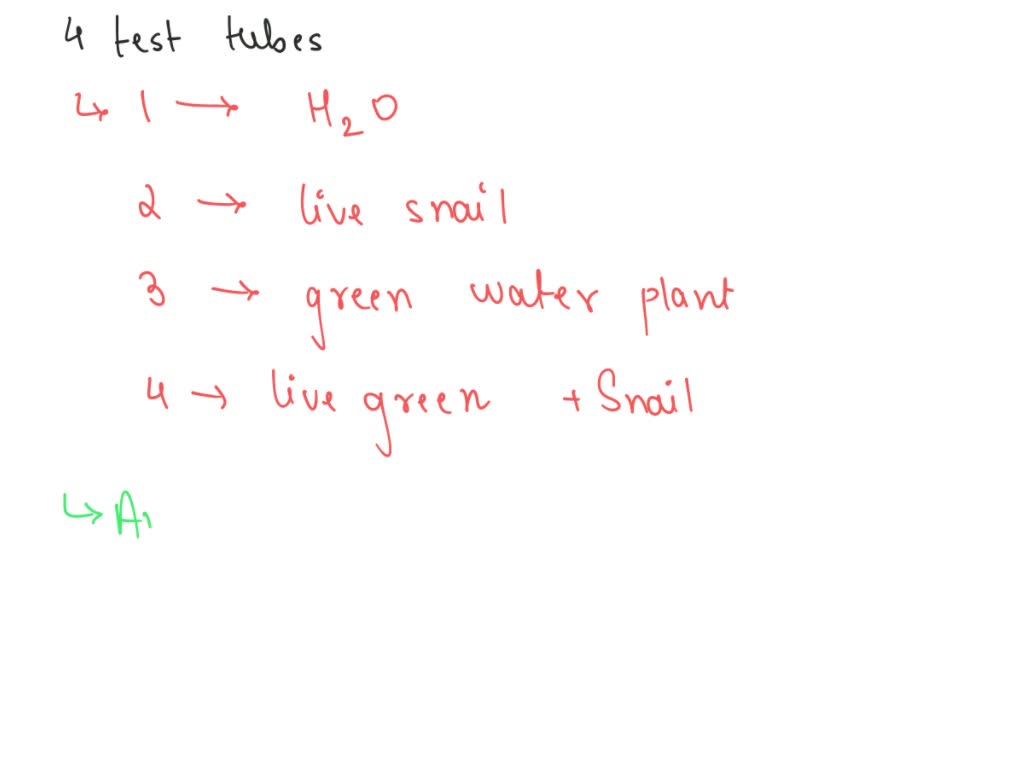 4 test tubes
↳ 1 → H₂O
2 → live snail
3 → green water plant
4 → live green + Snail
↳